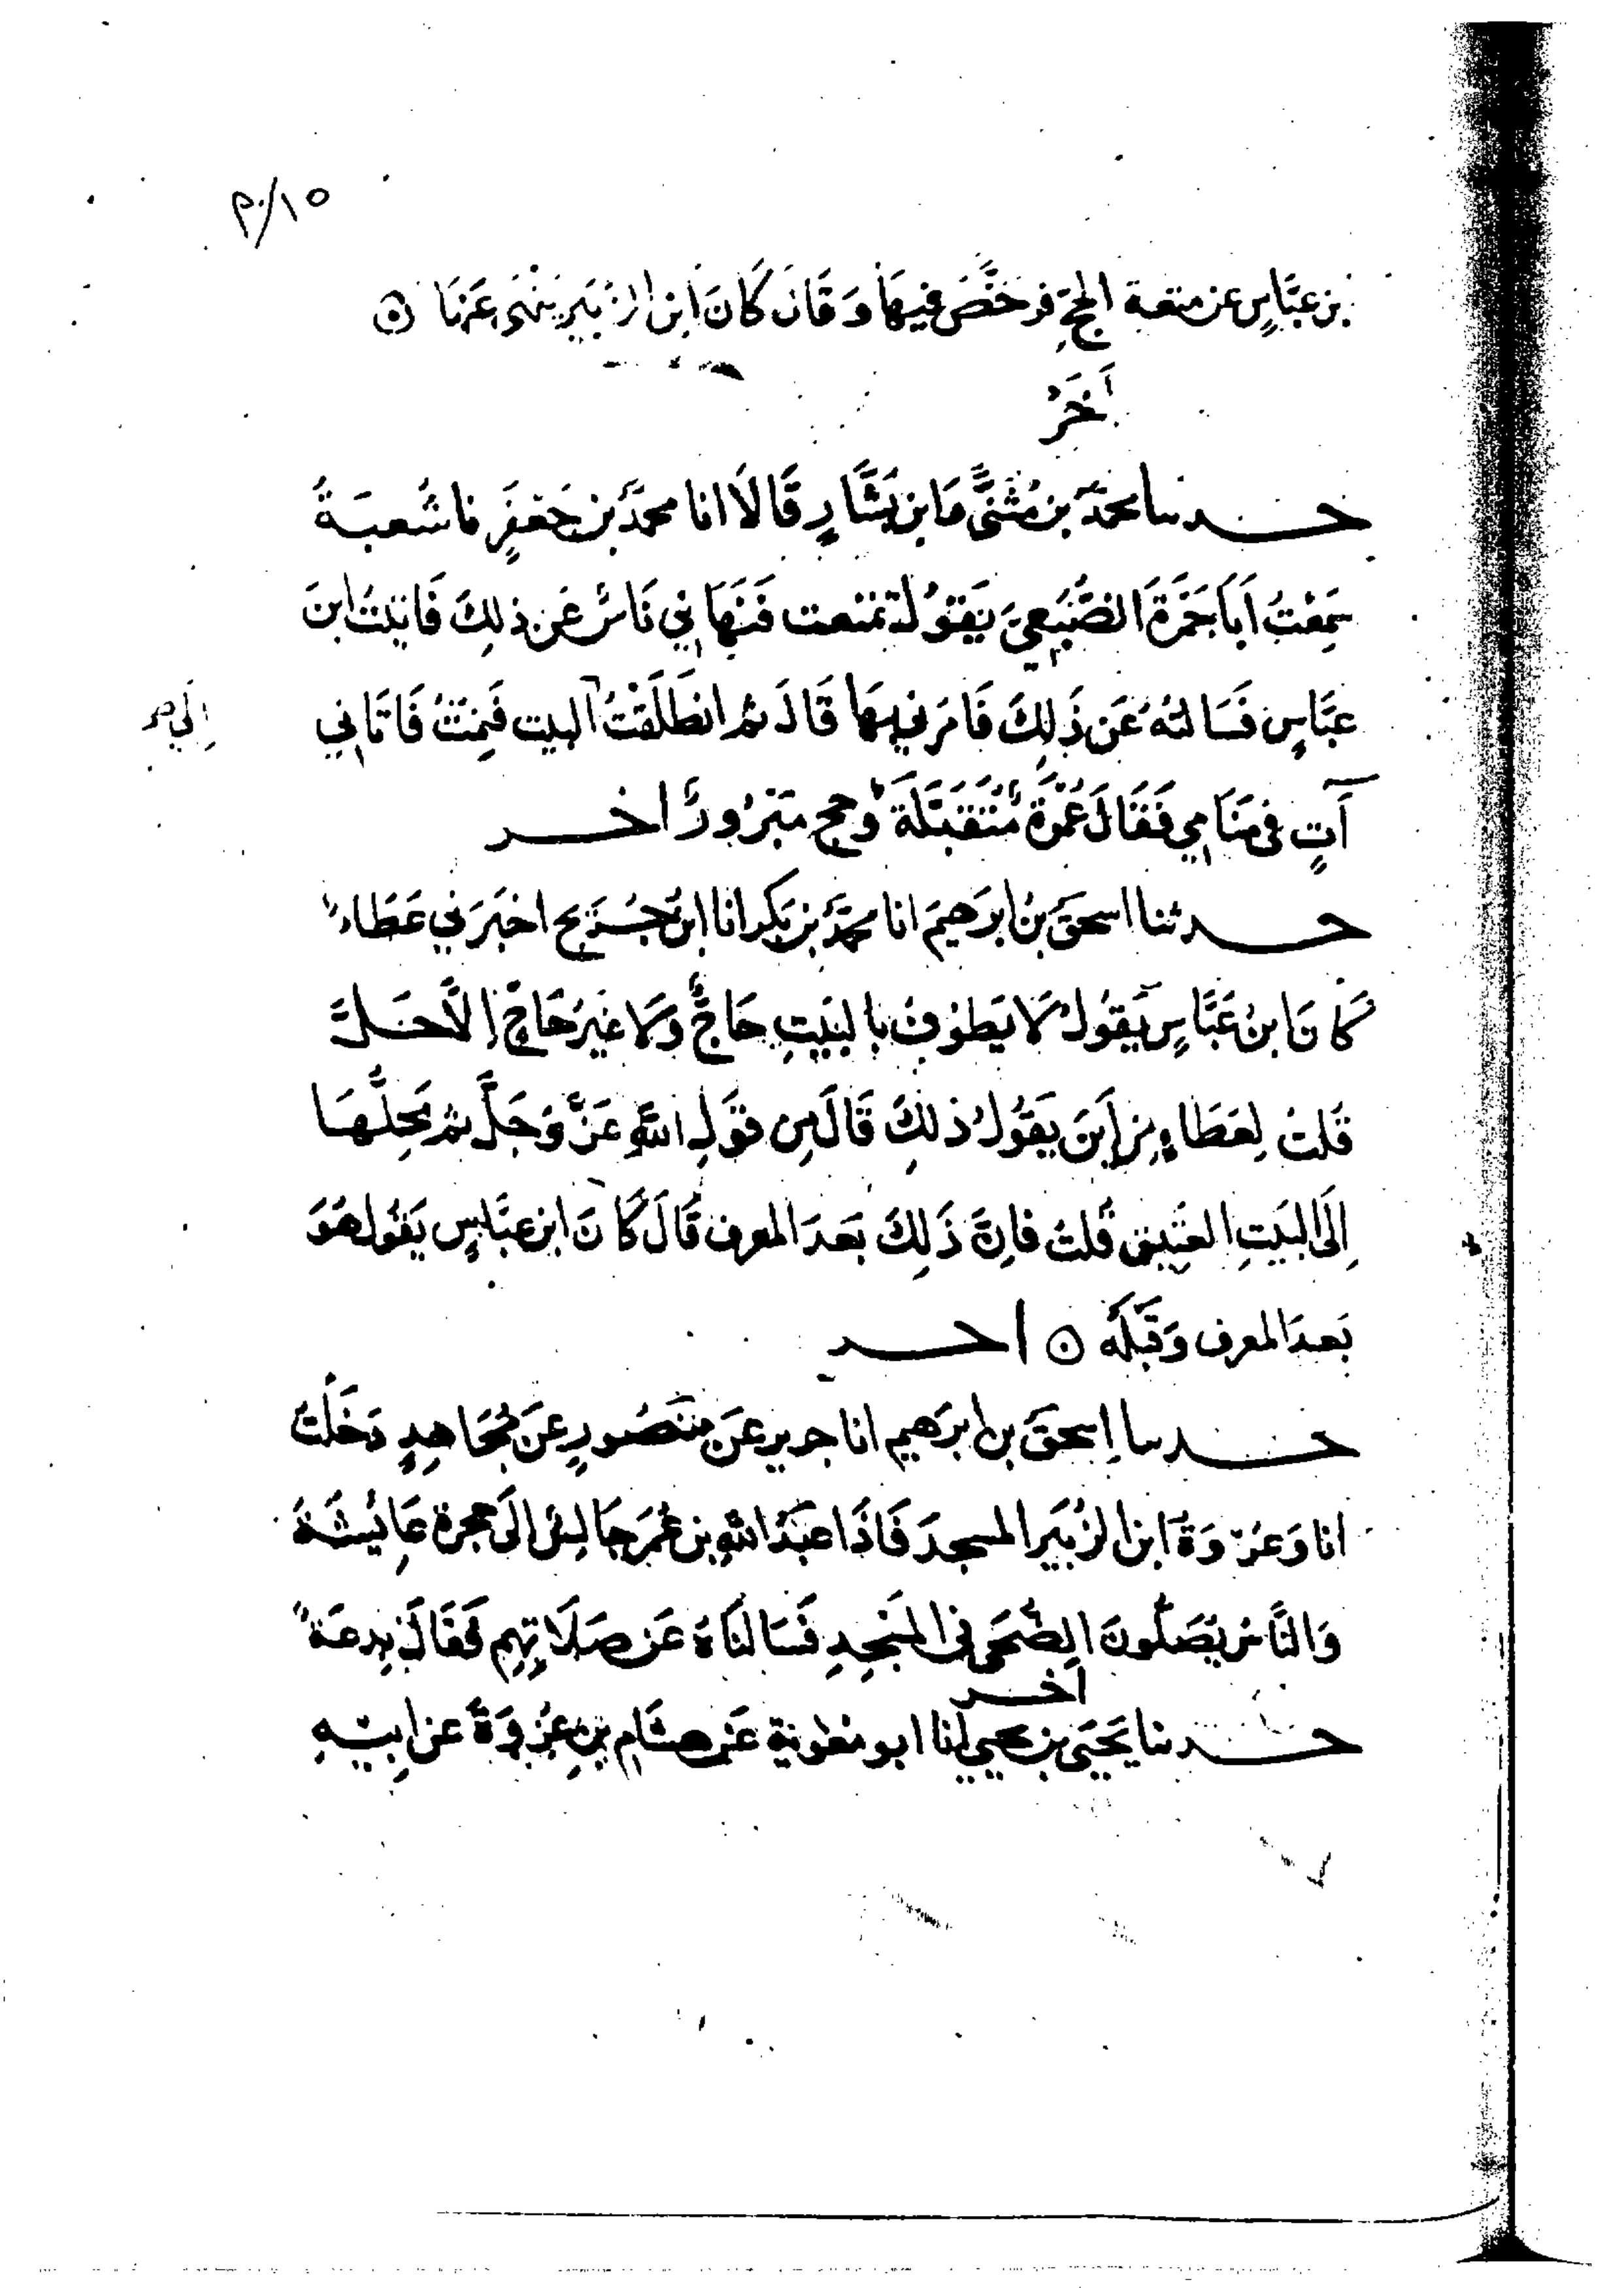 ١٥/م
بن عَبَّاسٍ عن متعة الحجِّ فرخَّصَ فيهَا وَقَالَ كَانَ ابن الزبَير ينهَى عَنهَا ه
آخَرُ
حدثنا محمدُ بن مُثنًّى وَابن بَشَّارٍ قَالَا انا محمدُ بن جَعفَرٍ نا شُعبَةُ
سَمِعْتُ اَبَا جَمْرَةَ الضُّبَعِيَّ يَقُولُ تمتعت فَنَهَانِي نَاسٌ عَن ذلِكَ فَاتيتُ ابنَ
عبَّاسٍ فَسَالتهُ عَن ذَلِكَ فَامَرَني بهَا قَالَ ثم انطَلَقْتُ البيت فَنِمتُ فَاتَانِي
اِلَى صح
آتٍ في مَنَامِي فَقَالَ عُمْرَةٌ مُتَقَبَّلَةٌ وحج مَبْرُورٌ اخر
حدثنا اسحَقُ بنُ ابرَهيمَ انا محمدُ بن بَكر انا ابنُ جُرَيج اخبَرَني عَطَاءٌ
كَانَ ابنُ عَبَّاسٍ يَقُولُ لَا يَطُوفُ بالبَيتِ حَاجٌّ وَلَا غَيرُ حَاجٍّ اِلَّا حَلَّ
قُلتُ لِعَطَاءٍ مِن اَينَ يَقُولُ ذلكَ قَالَ مِن قَولِ اللَّهِ عَزَّ وَجَلَّ ثم مَحِلُّهَا
اِلَى البَيتِ العَتِيقِ قُلتُ فَاِنَّ ذَلِكَ بَعدَ المعرف قَالَ كَانَ ابن عبَّاسٍ يَقُول هُوَ
بَعدَ المعرف وَقَبلَهُ ه اخر
حدثنا اِسحَقُ بن ابرَهيم انا جرير عَن مَنصُورٍ عَن مُجَاهِدٍ دَخَلتُ
انا وَعُروَةُ ابن الزُبَير المسجدَ فَاذَا عَبدُ اللَّهِ بن عُمَرَ جَالِسٌ اِلَى حجرة عَايِشَةَ
وَالنَّاسُ يُصَلُّونَ الضُحَى في المَسجِدِ فَسَالنَاهُ عَن صَلَاتِهِم فَقَالَ بِدعَةٌ
اخر
حدثنا يَحيَى بن يحيى انا ابو معُويةَ عَن هشَامِ بن عُروَةَ عن ابِيهِ